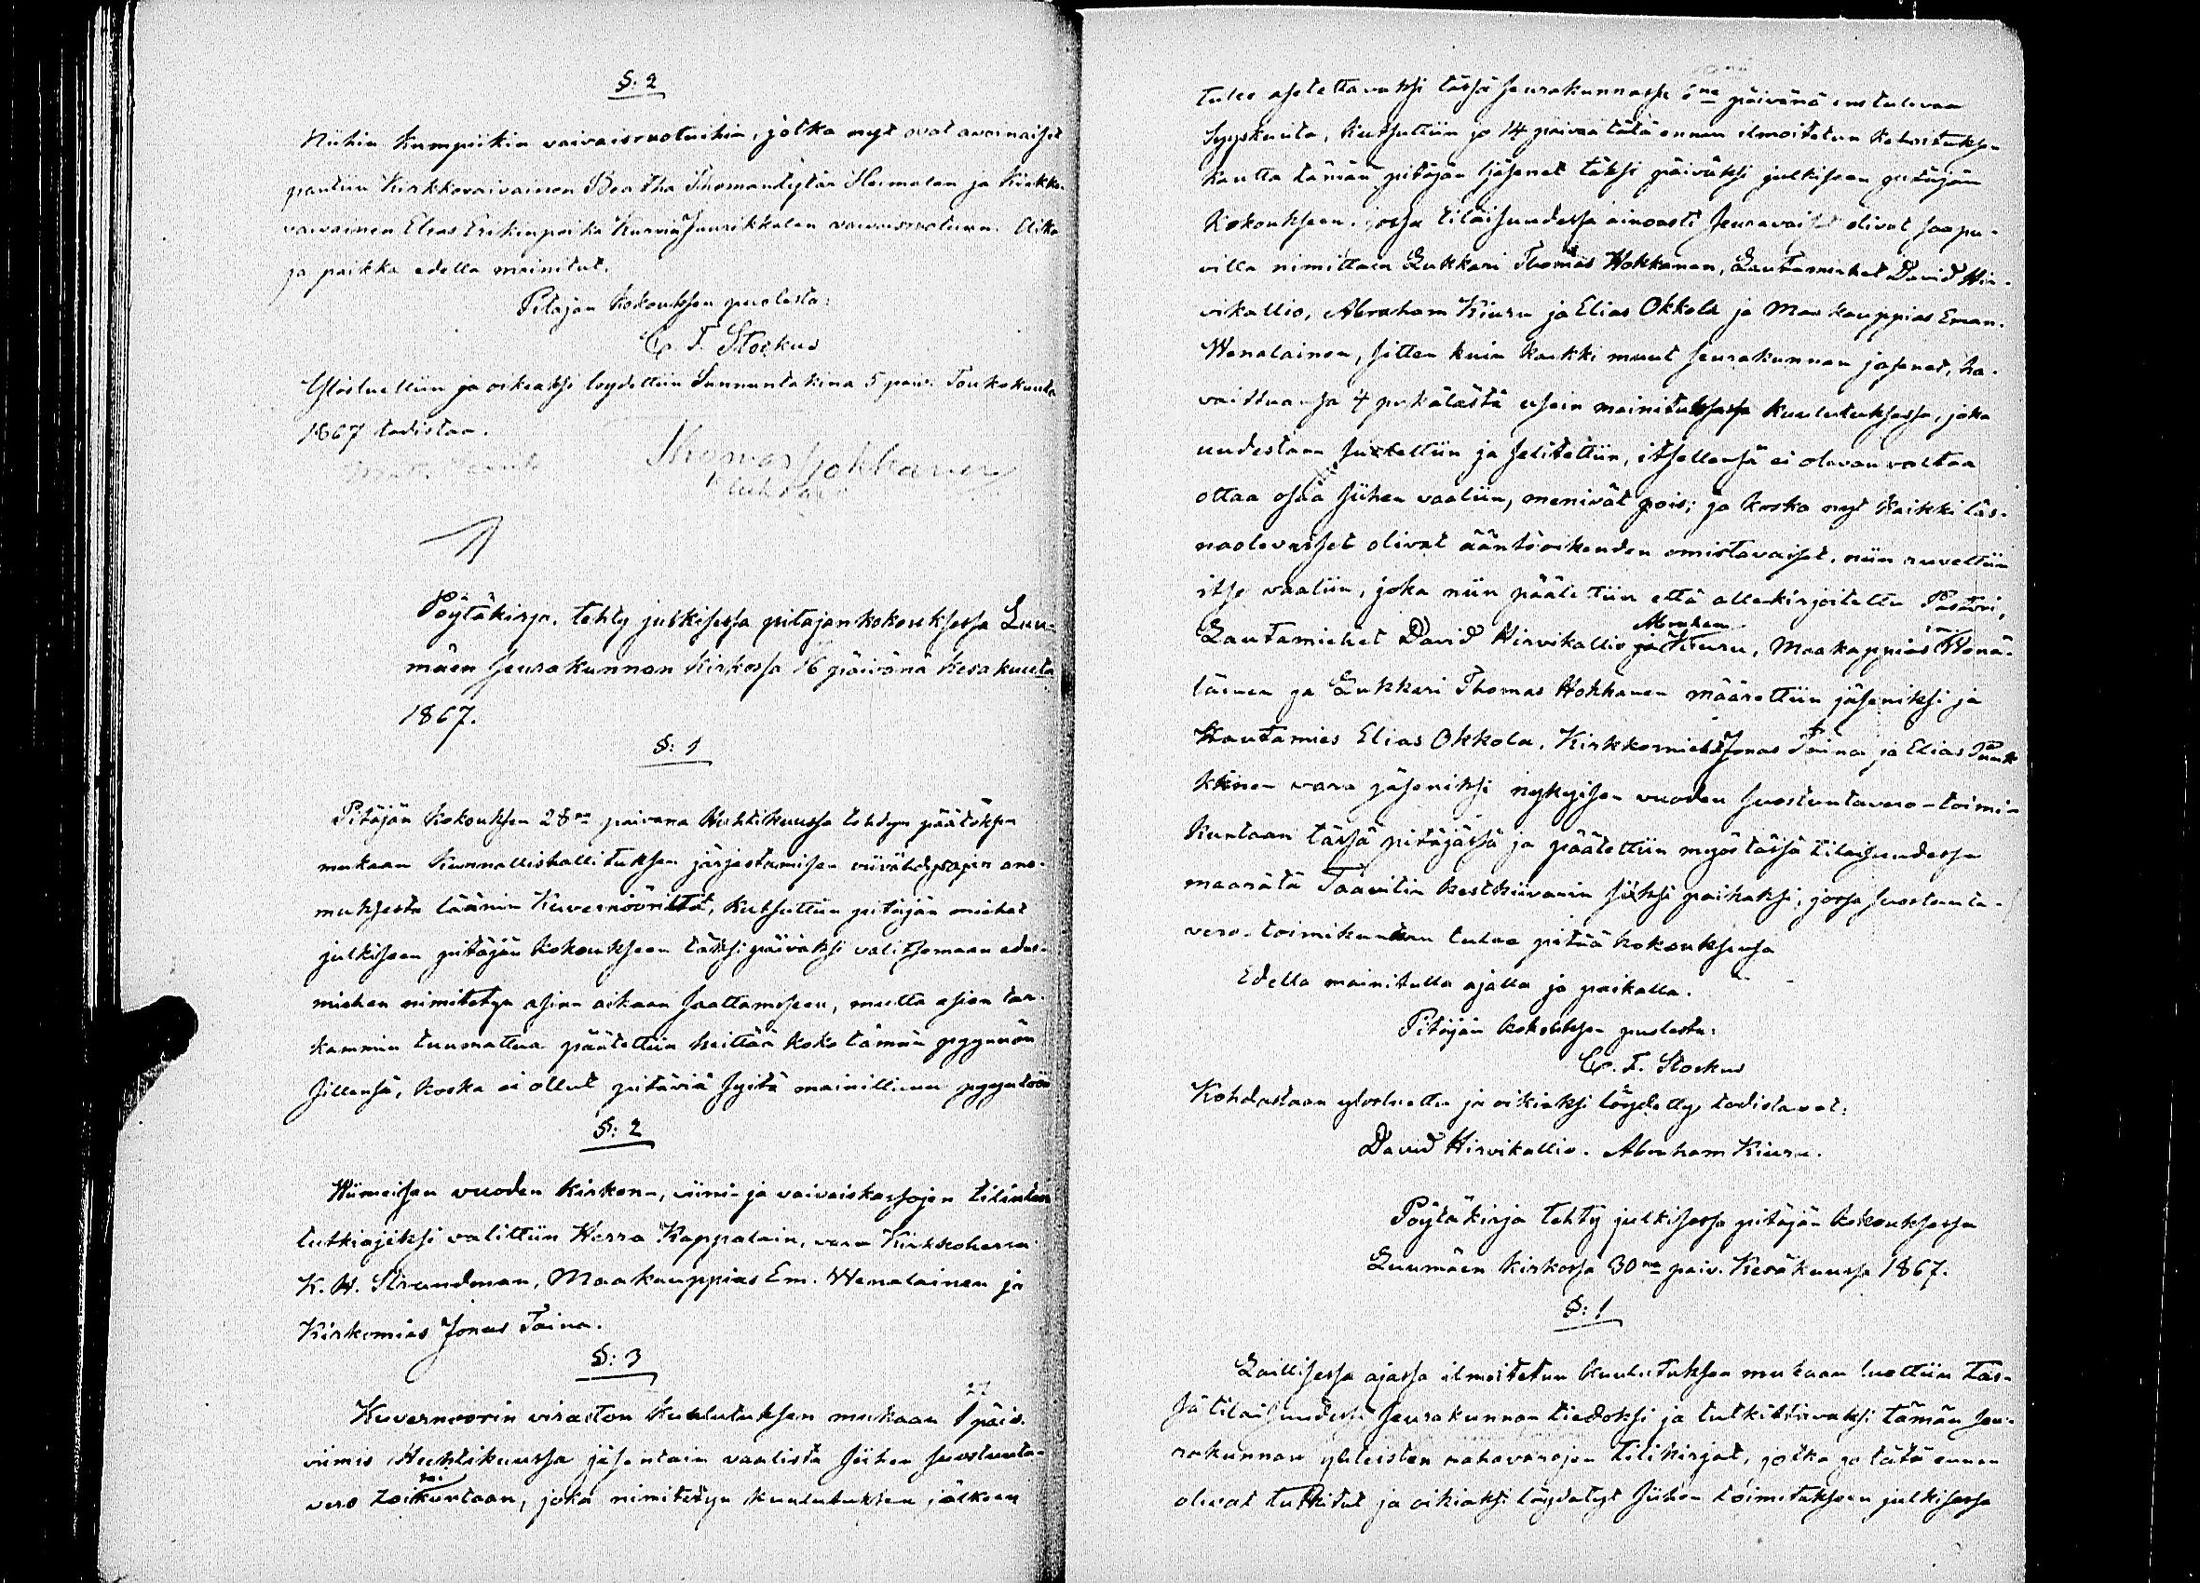 §: 2
Niihin kumpiikin vaivaisruotuihin, jotka nyt ovat avoinaiset
pantiin Kirkkovaivainen Beatha Thomantytär Heimalan ja Kirkko
vaivainen Elias Erikinpoika Kurmi Juurikkalan vaivaisruotuun. Aika
ja paikka edellä mainitut.
Pitäjän kokouksen puolesta:
C. F. Stockus
Ylösluettiin ja oikeaksi löydettiin Sunnuntakina 5 päiv. Toukokuuta
1867 todistaa.
Thomas Hokkanen
Lukkari
Pöytäkirja, tehty julkisessa pitäjänkokouksessa Luu-
mäen seurakunnan Kirkossa 16 päivänä Kesäkuuta
1867.
§: 1
Pitäjän kokouksen 28na päivänä Huhtikuussa tehdyn päätöksen
mukaan Kunnallishallituksen järjestämisen ano-
muksesta läänin Kuvernööriltä, kutsuttiin pitäjän miehet
julkiseen pitäjän kokoukseen täksi päiväksi valitsemaan edus-
miehen nimitetyn asian aikaan saattamiseen, mutta asian tar-
kemmin tuumattua päätettiin heittää koko tämän pyynnön
sillensä, koska ei ollut pitäviä syitä mainilliseen pyyntöön
§: 2
Wiimeisen vuoden kirkon-, viini- ja vaivaiskassojen tilinten
tutkiajiksi valittiin Herra Kappalain, vara Kirkkoherra
K. W. Strandman, Maakauppias Em. Wenalainen ja
Kirkomies Jonas Taina.
§: 3
Kuvernoorin viraston kuulutuksen mukaan 27 päiv.
viimis Huhtikuussa jäsentain vaalista siihen suostunta-
vero toimikuntaan, joka nimitetyn kuulutuksen jälkeen
tulee asetettavaksi tässä seurakunnassa 6na päivänä ens tulevaa
Syyskuuta, kutsuttiin jo 14 päivää tätä ennen ilmoitetun kehoituksen
kautta tämän pitäjän jäsenet täksi päiväksi julkiseen pitäjän
kokoukseen, jossa tilaisuudessa ainoasti seuraavaiset olivat saapu-
villa nimittäin Lukkari Thomas Hokkanen, Lautamiehet David Hir-
vikallio, Abraham Kiuru ja Elias Okkola ja Maakauppias Eman.
Wenalainen, sitten kuin kaikki muut seurakunnan jäsenet, ha-
vaittuansa 4 pykälästä usein mainitussa kuulutuksessa, joka
uudestaan luettiin ja selitettiin, itsellensä ei olevan valtaa
ottaa osaa siihen vaaliin, menivät pois; ja koska nyt kaikki läs-
näolevaiset olivat ääntöoikeuden omistavaiset, niin ruvettiin
itse vaaliin, joka niin päätettiin että allekirjoitettu Pastori,
Lautamiehet David Hirvikallio ja Abraham Kiuru, Maakappias Em. Wenä-
läinen ja Lukkari Thomas Hokkanen määrettiin jäseniksi ja
Lautamies Elias Okkola, Kirkkomiehet Jonas Taina ja Elias Pauk
kkinen vara jäseniksi nykyisen vuoden suostuntavero-toimi-
kuntaan tässä pitäjässä ja päätettiin myös tässä tilaisuudessa
maarätä Taavitin kestkiivarin siksi paikaksi, jossa suostunta-
vero-toimikunnan tulee pitää kokouksensa
Edella mainitulla ajalla ja paikalla.
Pitäjän kokouksen puolesta:
C. F. Stockus
Kohdastaan ylösluettu ja oikiaksi löydetty, todistavat:
David Hirvikallio. Abraham Kiuru.
Pöytäkirja tehty julkisessa pitäjän kokouksessa
Luumäen kirkossa 30na päiv. Kesäkuussa 1867.
§: 1
Laillisessa ajassa ilmoitetun kuulutuksen mukaan luettiin täs-
sä tilaisuudessa seurakunnan tiedoksi ja tutkittavaksi tämän seu-
rakunnan yhteisten rahavarojen tilikirjat, jotka jo tätä ennen
olevat tutkitut ja oikiaksi löydetyt siihen toimitukseen julkisessa